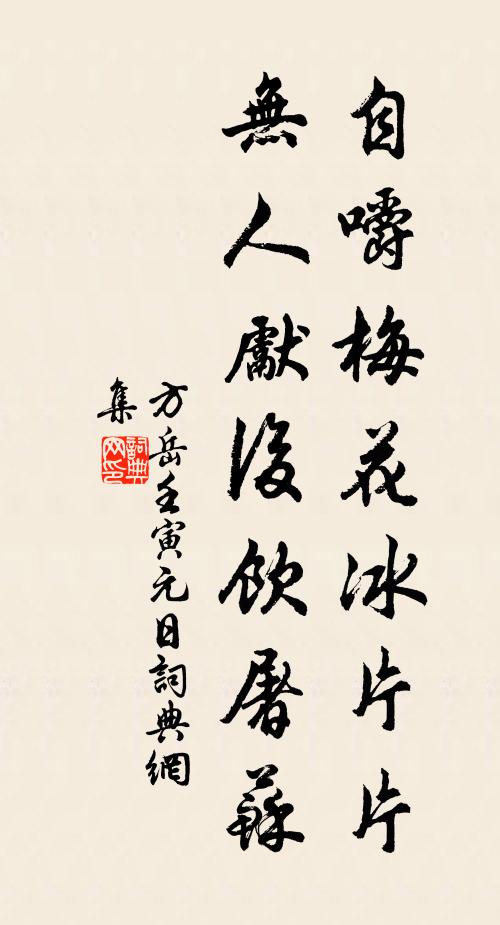 自嚼梅花冰片片
無人獻後飲屠蘇
方岳壬寅元日詞典網
集
詞典網印